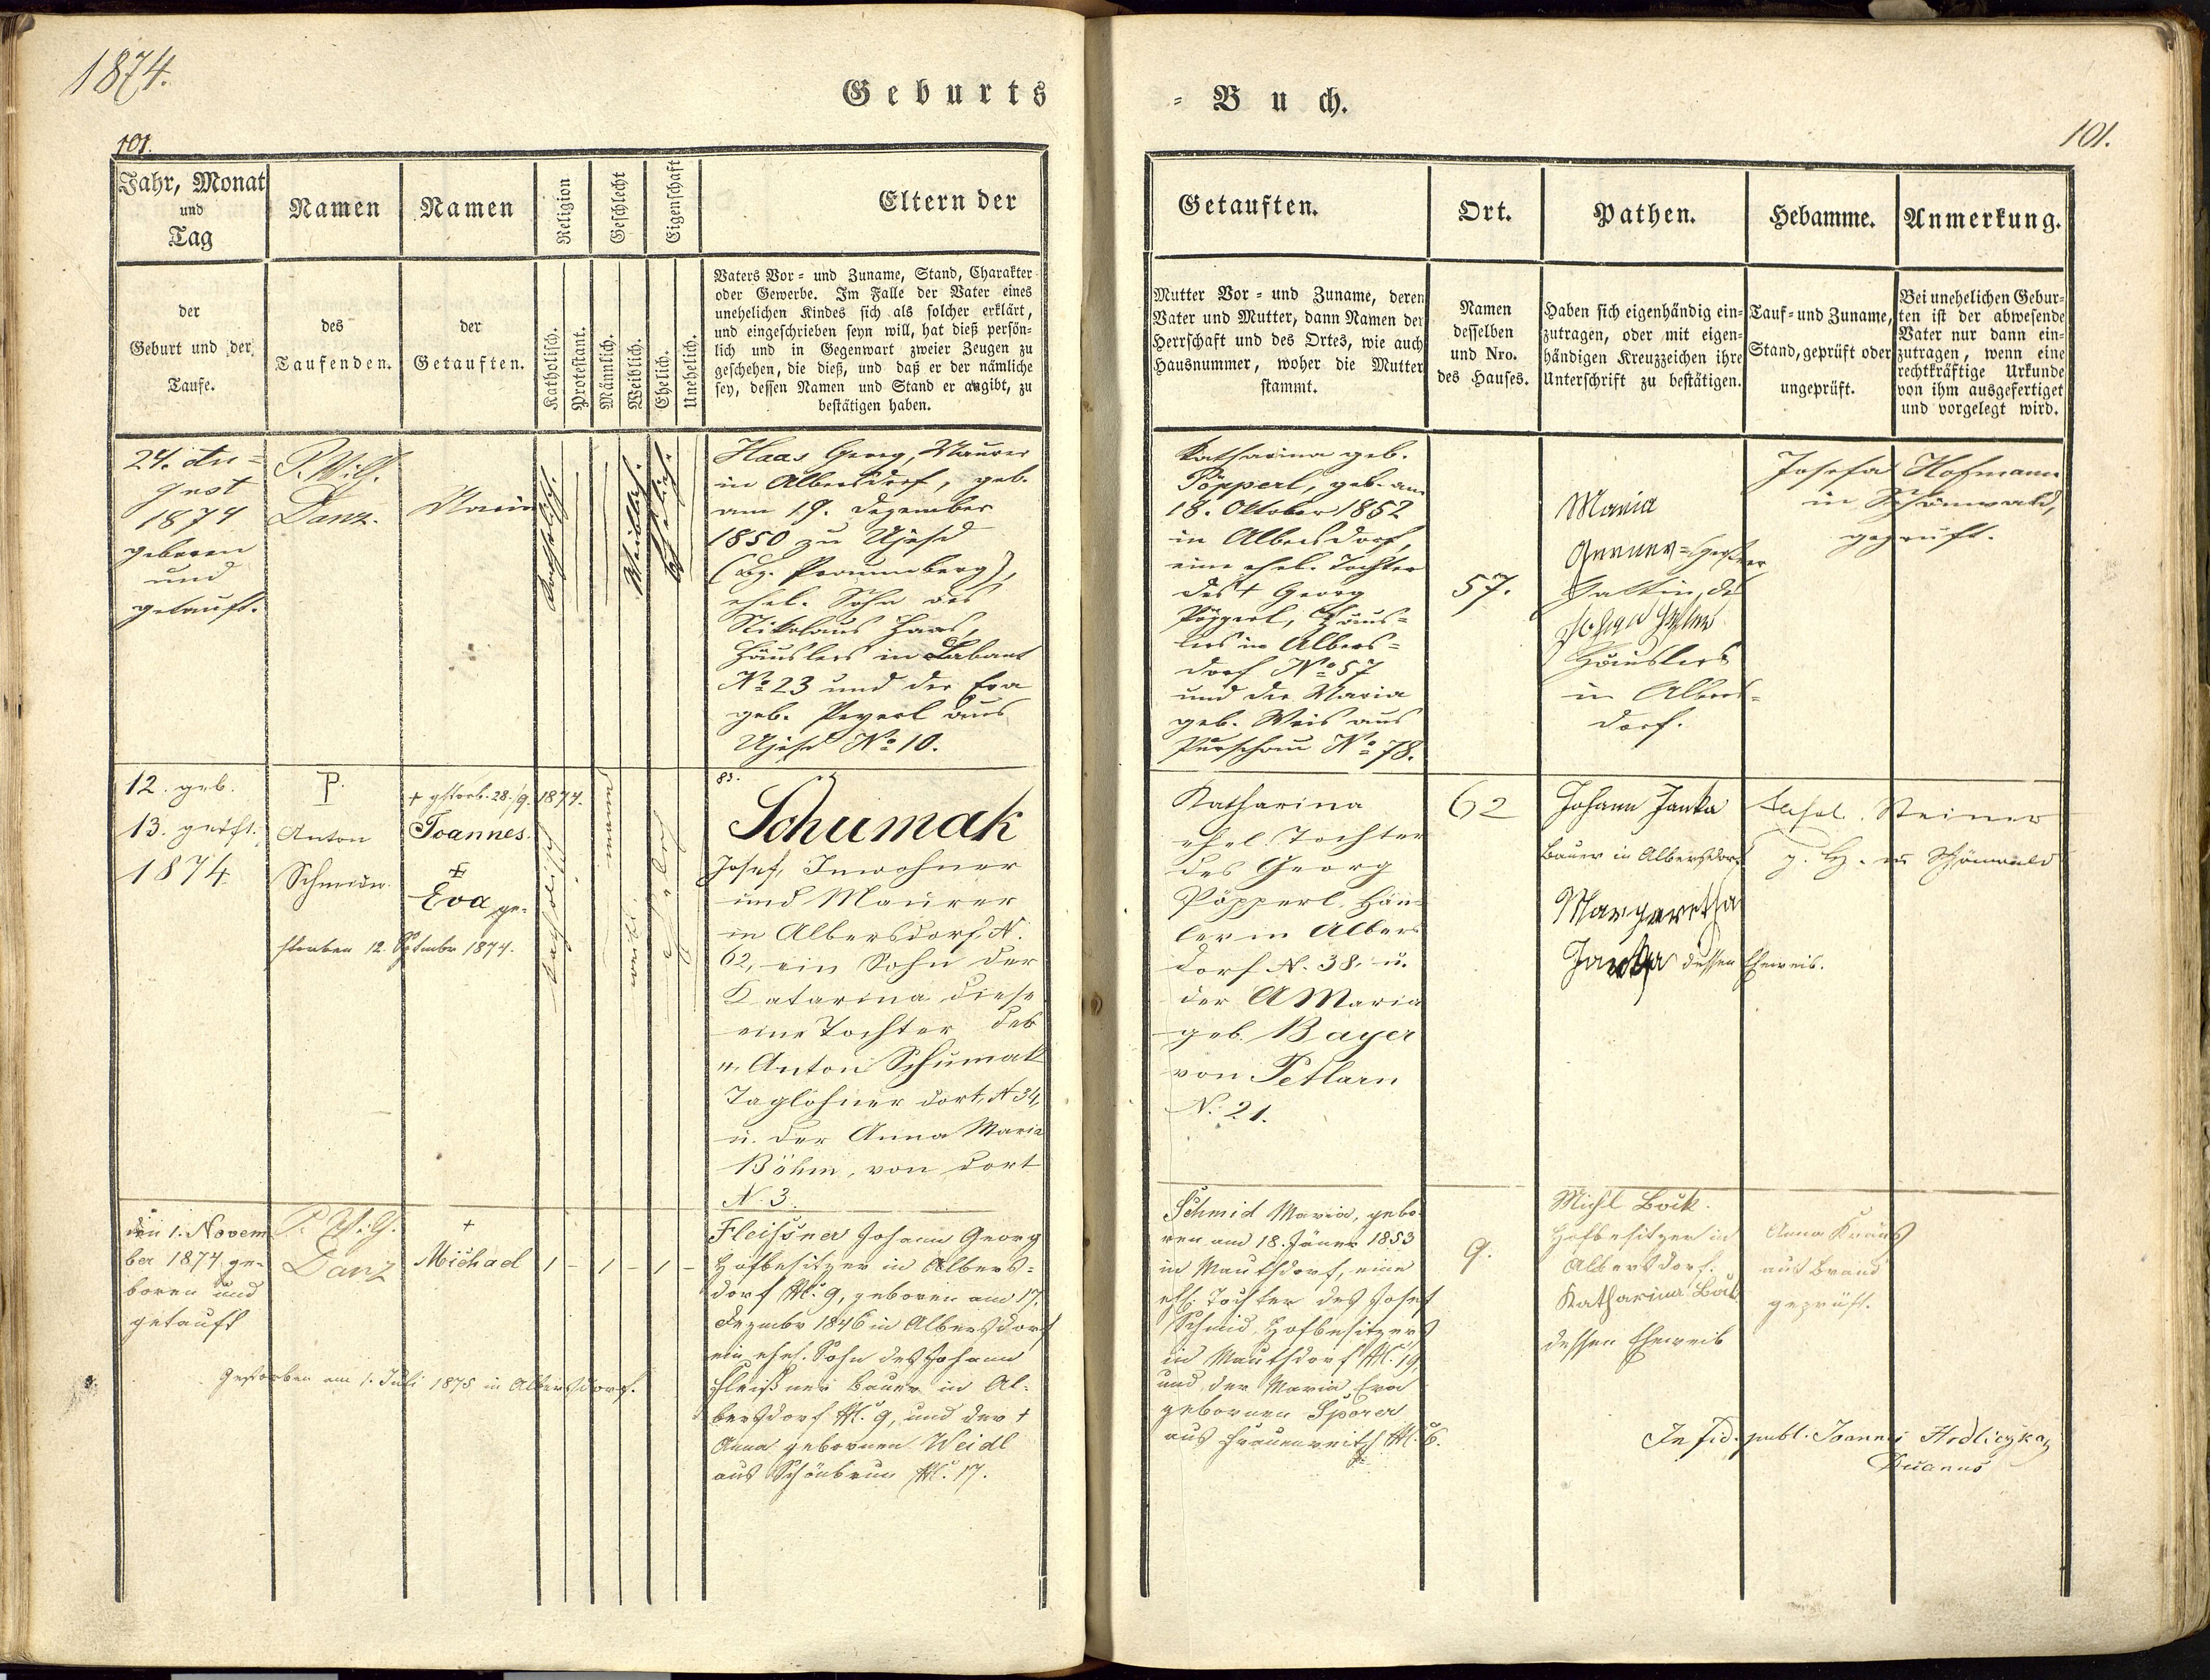 1874.
Geburts
101.
Jahr, Monat
und
Tag
Namen
Namen
Religion
Geschlecht
Eigenschaft
Eltern der
der
Geburt und der
Taufe.
des
Taufenden.
der
Getauften.
Katholisch.
Protestant.
Männlich.
Weiblich.
Ehelich.
Unehelich.
Vaters Vor- und Zuname, Stand, Charakter
oder Gewerbe. Im Falle der Vater eines
unehelichen Kindes sich als solcher erklärt,
und eingeschrieben seyn will, hat dieß persön-
lich und in Gegenwart zweier Zeugen zu
geschehen, die dieß, und daß er der nämliche
sey, dessen Namen und Stand er angibt, zu
bestätigen haben.
24. Au-
gust
1874
geboren
und
getauft.
P. Wilh.
Danz.
Maria
Katholisch.
Weiblich.
Ehelich.
Haas Georg, Maurer
in Albersdorf, geb.
am 19. Dezember
1850 zu Ujest
(Bz. Praumberg),
ehel. Sohn des
Nikolaus Haas,
Häuslers in Labant
No 23 und der Eva
geb. Peyerl aus
Ujest No 10.
12. geb.
13. getft.
1874
P.
Anton
Schmidt
+ gstorb. 28./9. 1874.
Joannes.
+
Eva ge-
storben 12. Septmbr 1874.
katholisch
83.
Schumak
Josef, Inwohner
und Maurer
in Albersdorf N.
62, ein Sohn der
Katarina diese
eine Tochter des
Anton Schumak
Taglöhner dort N 34,
u. der Anna Maria
Böhm, von dort
N. 3.
den 1. Novem
ber 1874 ge-
boren und
getauft
P. W. G.
Danz
+
Michael
1 - 1 - 1 -
Fleißner Johann Georg
Hofbesitzer in Albers-
dorf N. 9, geboren am 17.
Dezmbr 1846 in Albersdorf
ein ehel. Sohn des Johann
Fleißner Bauer in Al-
bersdorf N. 9, und der +
Anna gebornen Weidl
aus Schönbrun N. 17.
Gestorben am 1. Juli 1875 in Albersdorf.
- Buch.
101.
Getauften.
Ort.
Pathen.
Hebamme.
Anmerkung.
Mutter Vor- und Zuname, deren
Vater und Mutter, dann Namen der
Herrschaft und des Ortes, wie auch
Hausnummer, woher die Mutter
stammt.
Namen
desselben
und Nro.
des Hauses.
Haben sich eigenhändig ein-
zutragen, oder mit eigen-
händigen Kreuzzeichen ihre
Unterschrift zu bestätigen.
Tauf- und Zuname,
Stand, geprüft oder
ungeprüft.
Bei unehelichen Gebur-
ten ist der abwesende
Vater nur dann ein-
zutragen, wenn eine
rechtkräftige Urkunde
von ihm ausgefertiget
und vorgelegt wird.
Katharina geb.
Pöpperl, geb. am
18. Oktober 1852
in Albersdorf,
eine ehel. Tochter
des + Georg
Pöpperl, Häus-
lers in Albers-
dorf No 57
und der Maria
geb. Weis aus
Purschau No 78.
57.
Maria
Gattin des
Häuslers
in Albers-
dorf.
Josefa Hofmann
in Schönwald,
geprüft.
Katharina
ehel. Tochter
des Georg
Pöpperl, Häus
ler in Albers
dorf N. 38. u.
der A Maria
geb. Bayer
von Petlarn
N. 21.
62
Johann Janka
Bauer in Albersdorf
Margaretha
Janka dessen Eheweib.
Steiner
g. H. in Schönwald
Schmid Maria, gebo-
ren am 18. Jäner 1853
in Mauthdorf, eine
ehl. Tochter des Josef
Schmid, Hofbesitzers
in Mauthdorf N. 19,
und der Maria Eva
gebornen Sporer
aus Frauenreith N. 6.
9.
Michl Bock
Hofbesitzer in
Albersdorf.
Katharina Bock
dessen Eheweib
Anna Kraus
aus Brand
geprüft.
In fid. publ. Joannes Hrdliczka
Decanus